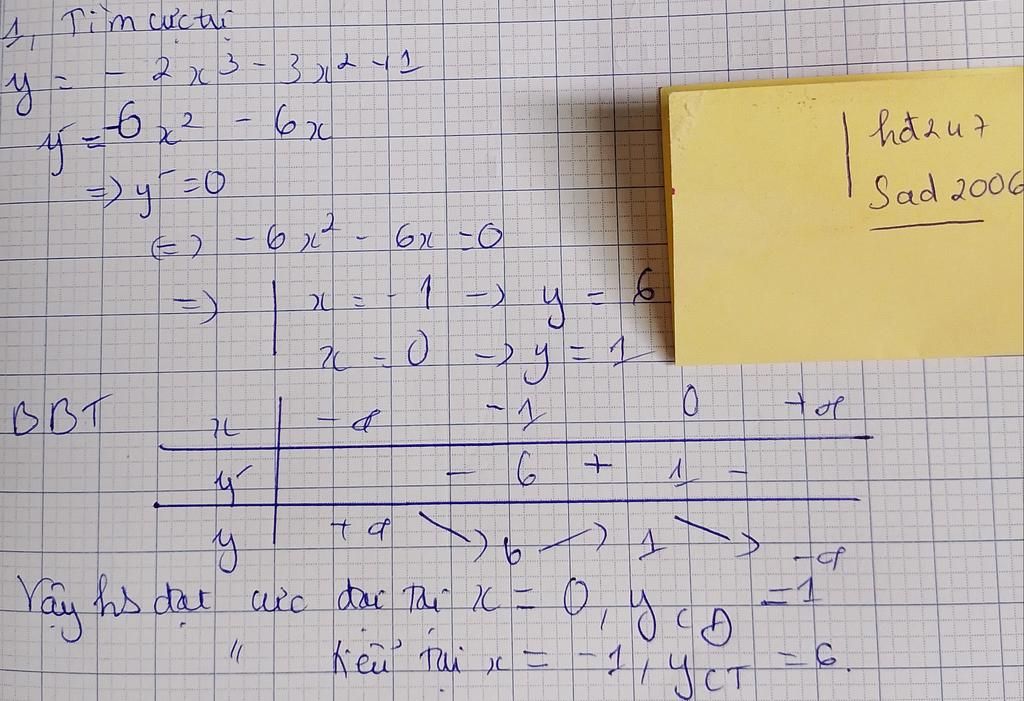 1, Tìm cực trị
y = - 2x³ - 3x² + 1
y' = -6x² - 6x
=> y' = 0
<=> - 6x² - 6x = 0
=> | x = - 1 -> y = 6
x = 0 -> y = 1
hđ247
Sad 2006
BBT x | - ∞ - 1 0 + ∞
y' | - 6 + 1 -
y | + ∞ ↘ 6 ↗ 1 ↘ - ∞
Vậy hs đạt cực đại tại x = 0, yCĐ = 1
" tiểu tại x = - 1, yCT = 6.